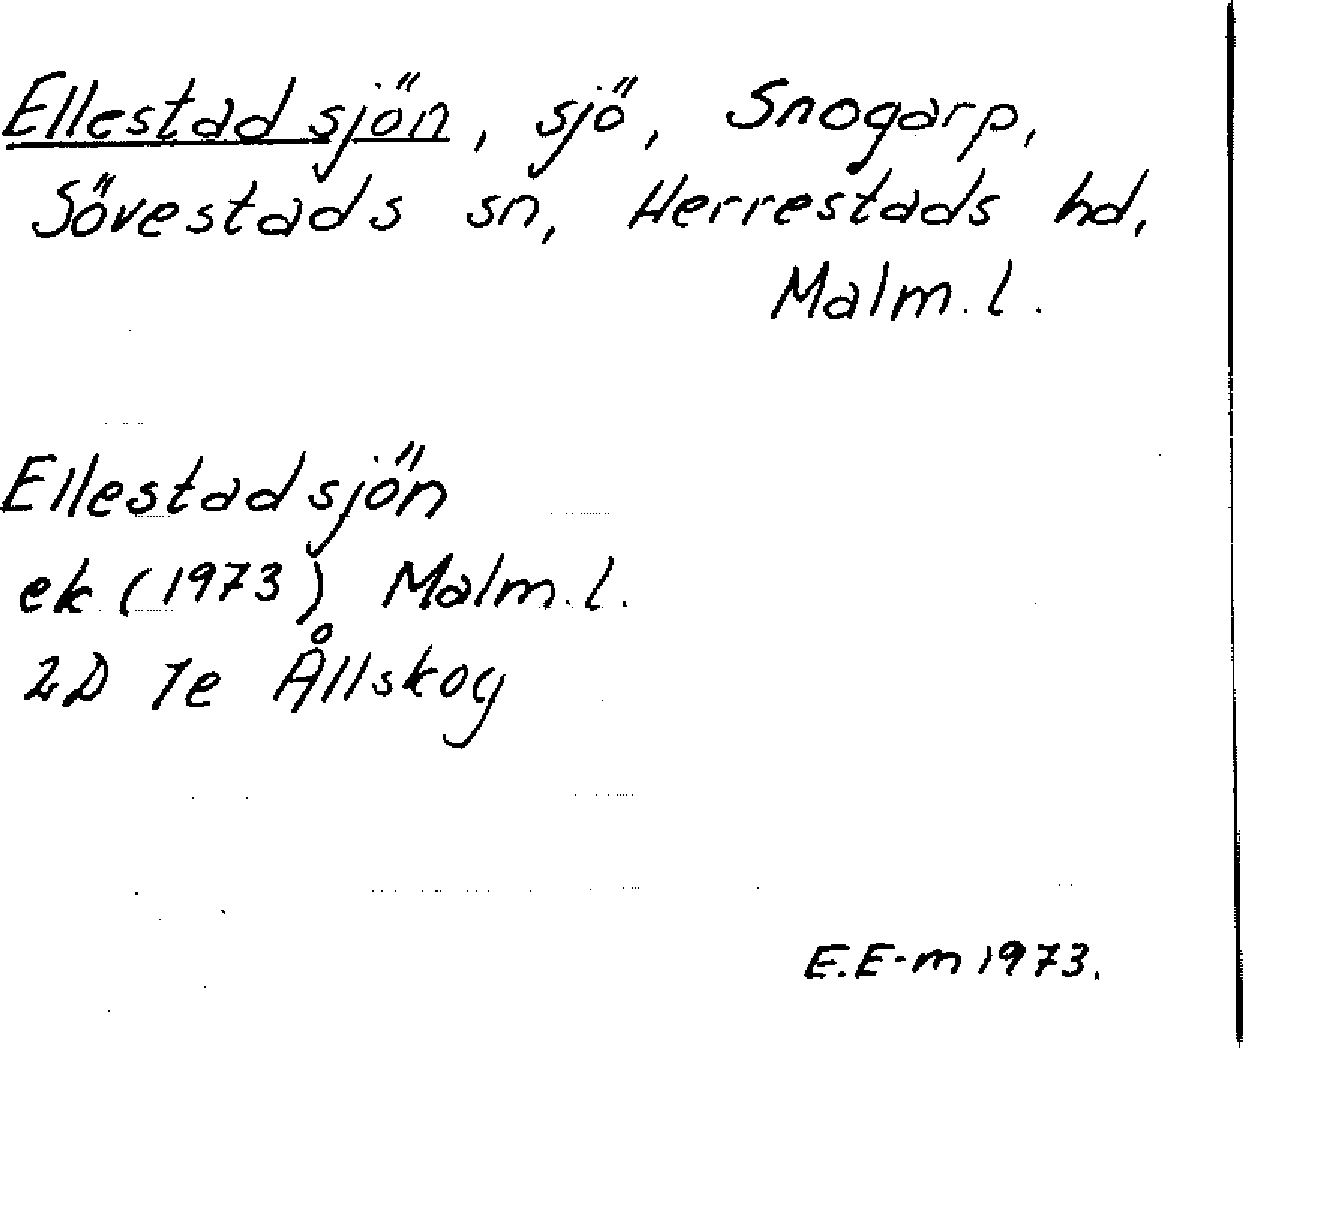 Ellestadsjön, sjö, Snogarp,
Sövestads sn, Herrestads hd,
Malm. l.
Ellestadsjön
ek (1973) Malm. l.
2D 7e Ållskog
E.E-m 1973.